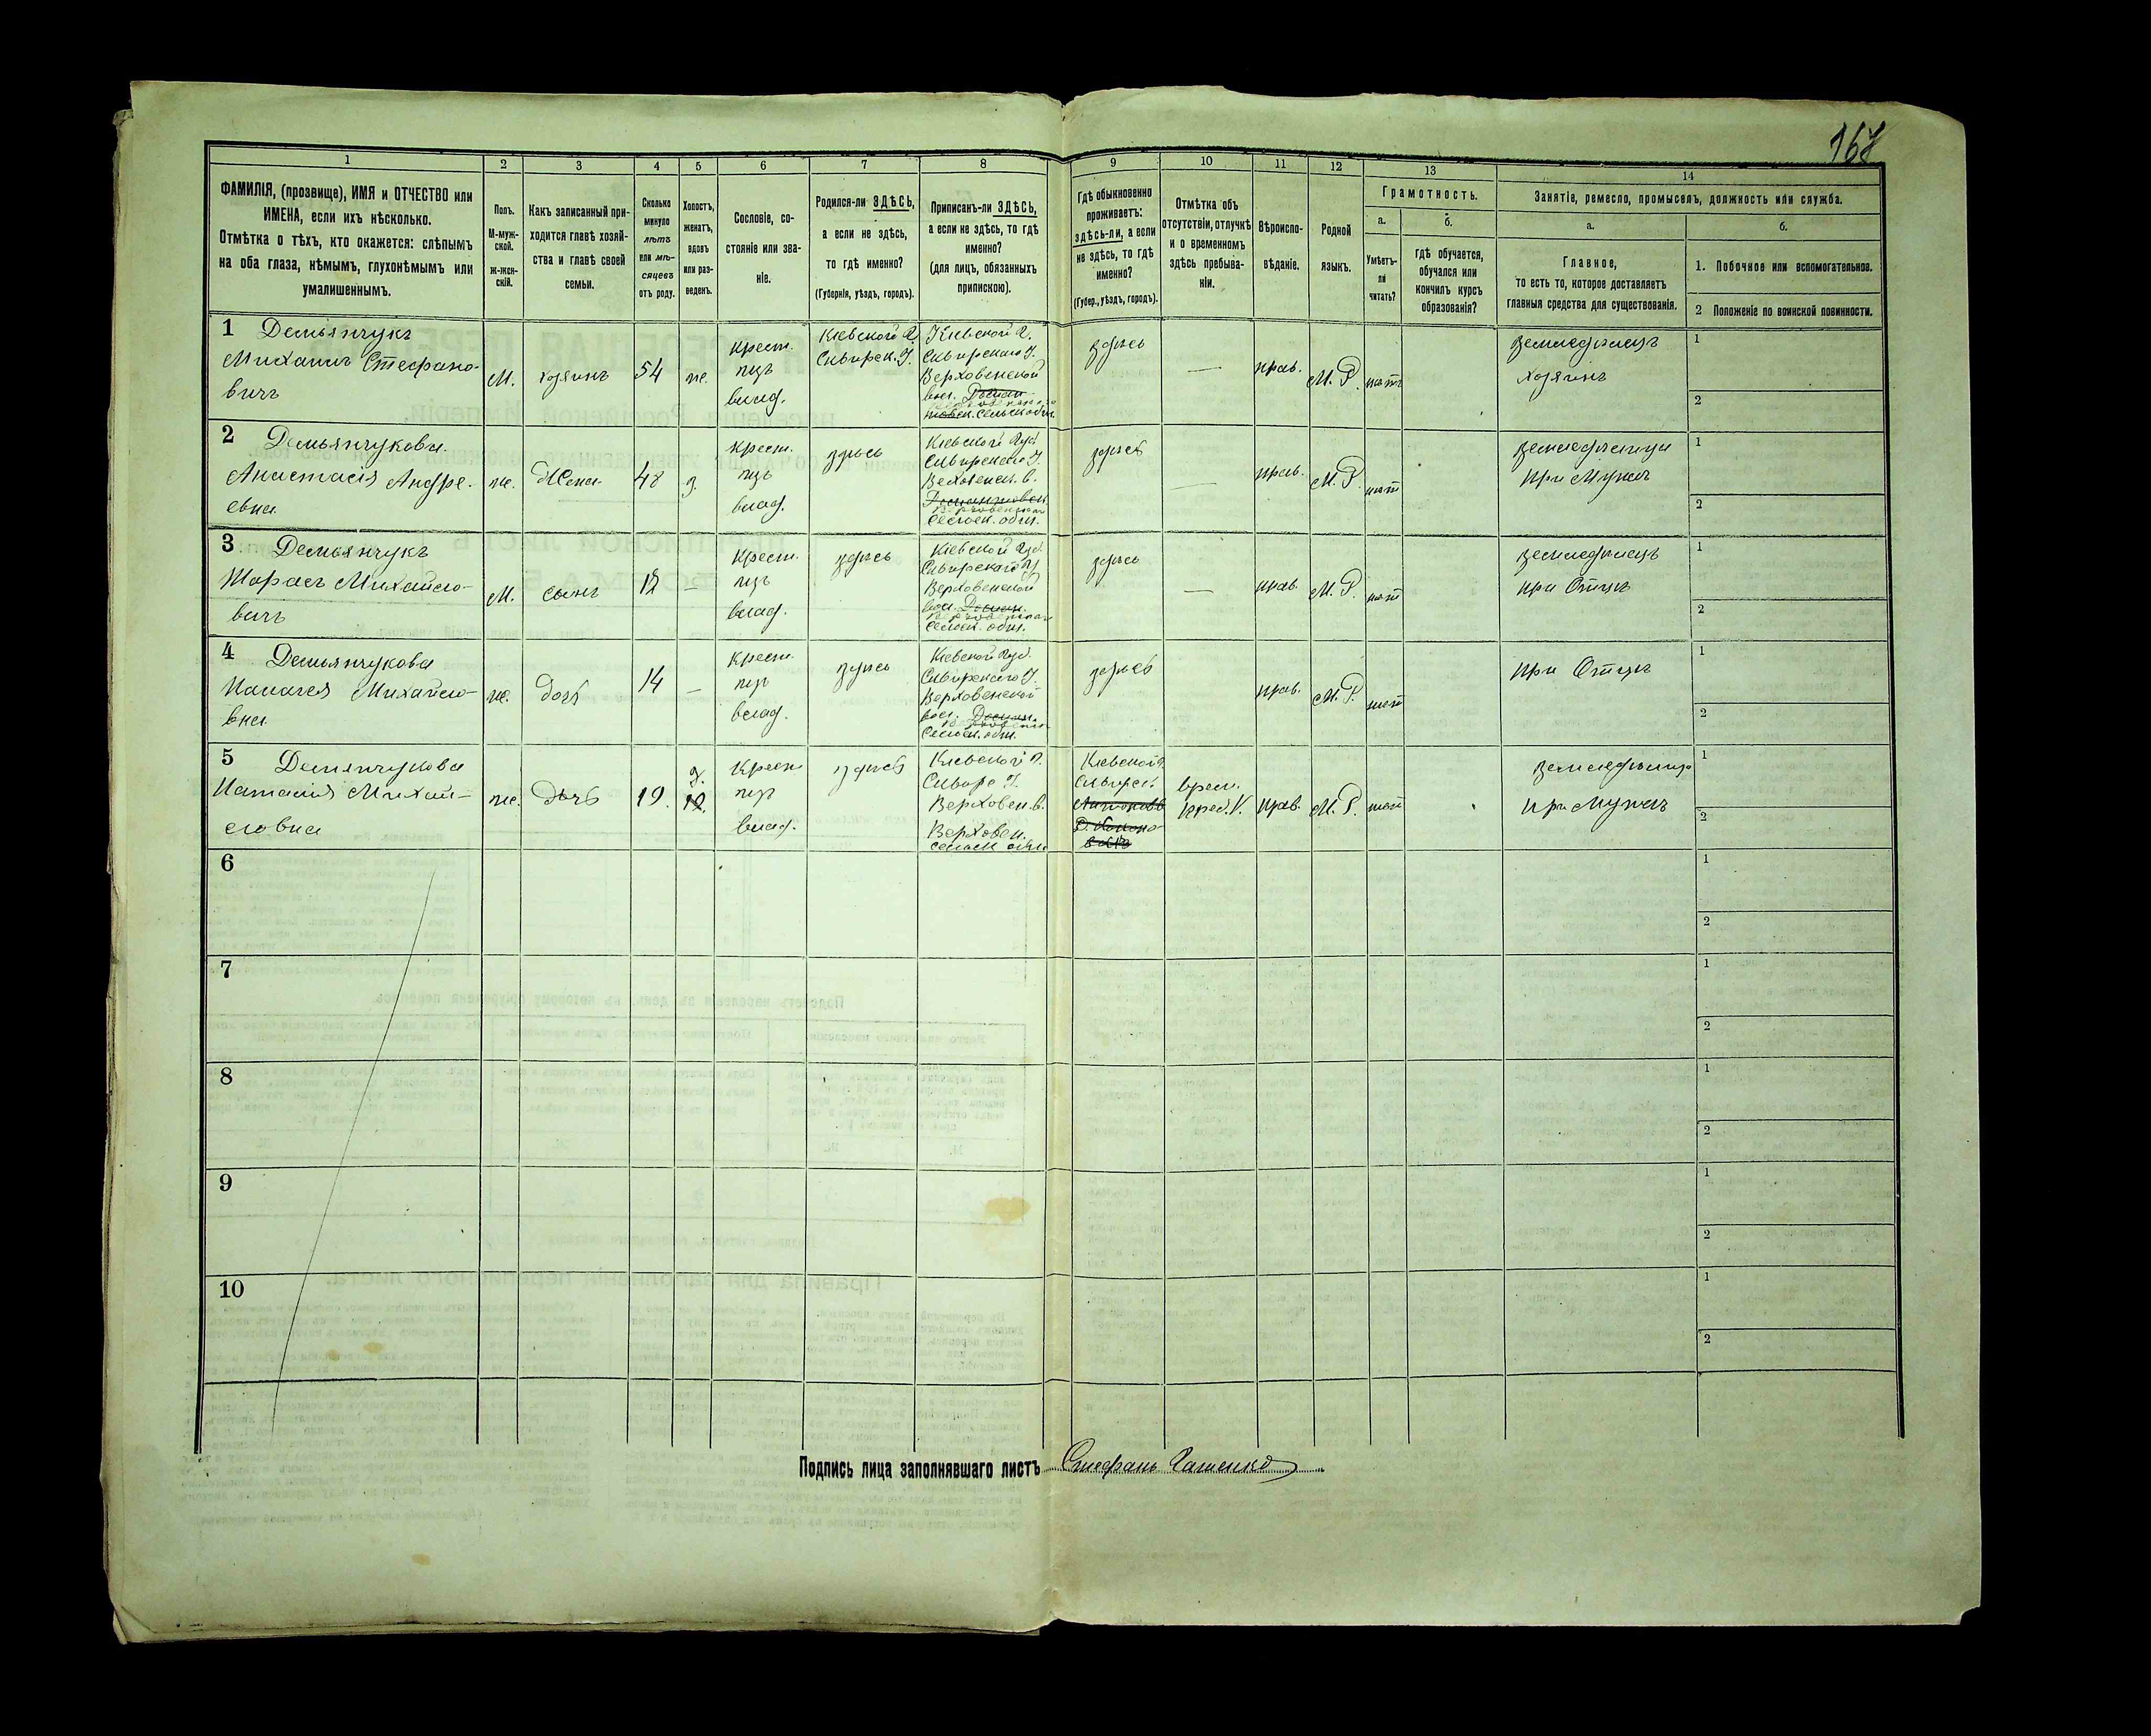 168
1
2
3
4
5
6
7
8
9
10
11
12
13
14
ФАМИЛІЯ, (прозвище), ИМЯ и ОТЧЕСТВО или
ИМЕНА, если ихъ нѣсколько.
Отмѣтка о тѣхъ, кто окажется: слѣпымъ
на оба глаза, нѣмымъ, глухонѣмымъ или
умалишеннымъ.
Полъ.
М-муж-
ской.
ж-жен-
скій.
Какъ записанный при-
ходится главѣ хозяй-
ства и главѣ своей
семьи.
Сколько
минуло
лѣтъ
или мѣ-
сяцевъ
отъ роду.
Холостъ,
женатъ,
вдовъ
или раз-
веденъ.
Сословіе, со-
стояніе или зва-
ніе.
Родился-ли ЗДѢСЬ,
а если не здѣсь,
то гдѣ именно?
(Губернія, уѣздъ, городъ).
Приписанъ-ли ЗДѢСЬ,
а если не здѣсь, то гдѣ
именно?
(для лицъ, обязанныхъ
припискою).
Гдѣ обыкновенно
проживаетъ:
здѣсь-ли, а если
не здѣсь, то гдѣ
именно?
(Губер., уѣздъ, городъ).
Отмѣтка объ
отсутствіи, отлучкѣ
и о временномъ
здѣсь пребыва-
ніи.
Вѣроиспо-
вѣданіе.
Родной
языкъ.
Грамотность.
а.
б.
Умѣетъ-
ли
читать?
Гдѣ обучается,
обучался или
кончилъ курсъ
образованія?
Занятіе, ремесло, промыселъ, должность или служба.
а.
б.
Главное,
то есть то, которое доставляетъ
главныя средства для существованія.
1. Побочное или вспомогательное.
2 Положеніе по воинской повинности.
1 Демьянчукъ
Михаилъ Стефано-
вичъ
М.
хозяинъ
54
ж.
крест.
изъ
влад.
Кіевской г.
Сквирск. у.
Кіевской г.
Сквирскаго у.
Верховенской
вол.
сельск. общ.
здѣсь
—
прав.
М. Р.
нѣтъ
земледѣлецъ
хозяинъ
1
2
2 Демьянчукова
Анастасія Андре-
евна
ж.
Жена
48
з.
Крест.
изъ
влад.
здѣсь
Кіевской Губ.
Сквирскаго у.
Верховенск. в.
Сельск. общ.
здѣсь
—
прав.
М. Р.
нѣт
земледѣлица
при Мужѣ
1
2
3 Демьянчукъ
Тарасъ Михайло-
вичъ
М.
сынъ
12
—
Крест.
изъ
влад.
здѣсь
Кіевской Губ.
Сквирскаго у.
Верховенской
вол.
Сельск. общ.
здѣсь
—
прав.
М. Р.
нѣт
земледѣлецъ
при Отцѣ
1
2
4 Демьянчукова
Палагея Михайло-
вна
ж.
дочь
14
—
крест.
изъ
влад.
здѣсь
Кіевской Губ.
Сквирскаго у.
Верховенской
вол.
Сельск. общ.
здѣсь
прав.
М. Р.
нѣт
при Отцѣ
1
2
5 Демянчукова
Наталія Михай-
ловна
ж.
дочь
19.
з.
Крест
изъ
влад.
здѣсь
Кіевской г.
Сквирс у.
Верховен. в.
Верховен.
сельск общ
Кіевской г.
Сквирск.
врем.
преб.
прав.
М. Р.
нѣт
земледѣлица
при Мужѣ
1
2
6
1
2
7
1
2
8
1
2
9
1
2
10
1
2
Подпись лица заполнявшаго листъ